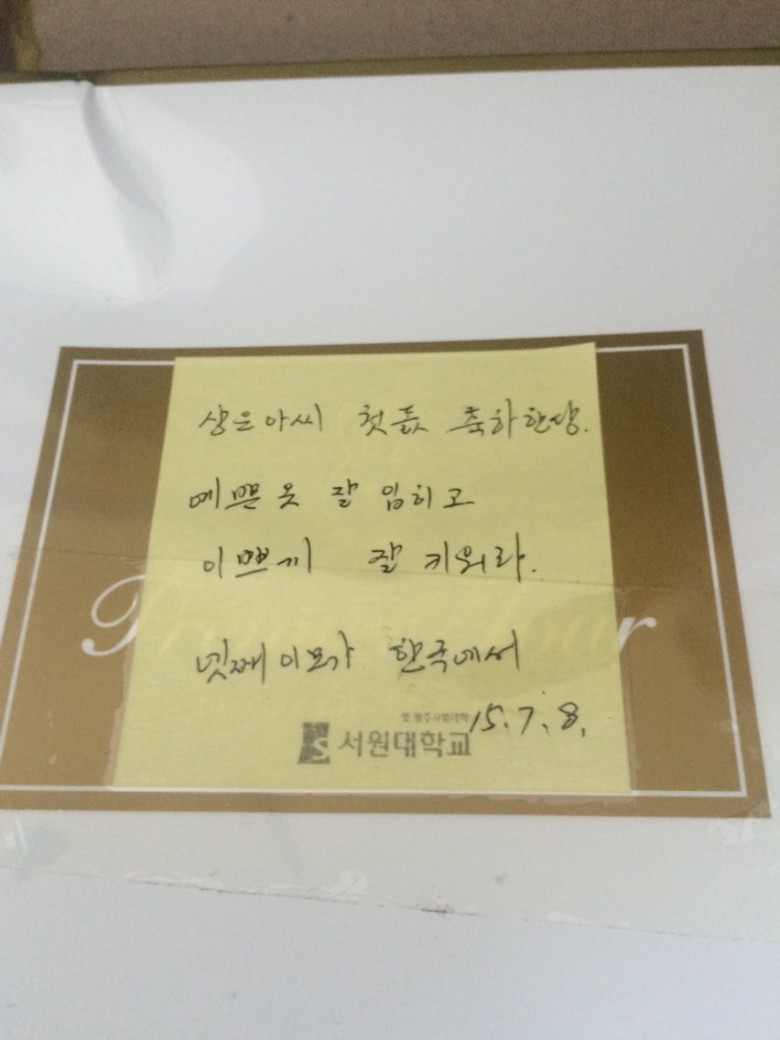 상은아씨 첫돐 축하한당.
예쁜옷 잘 입히고
이쁘게 잘 키워라.
넷째이모가 한국에서
15.7.8.
옛 청주사범대학
서원대학교